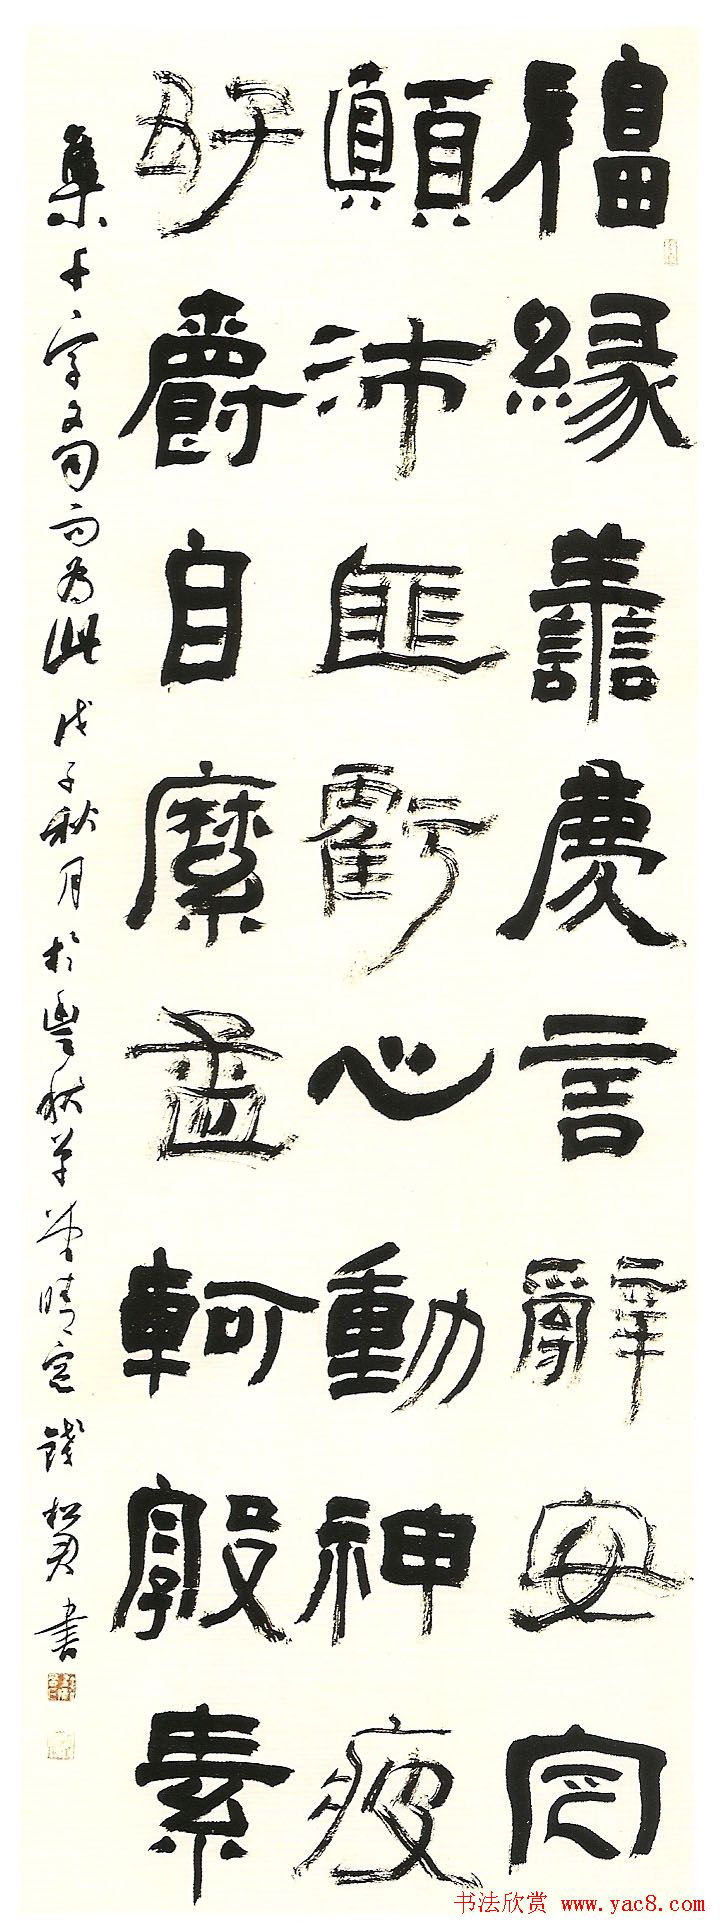 福緣善慶言辭安定
顛沛匪虧心動神疲
好爵自縻孟軻敦素
集千字文句而為此戊子秋月於豐秋草堂晴窗錢松君書
书法欣赏 www.yac8.com